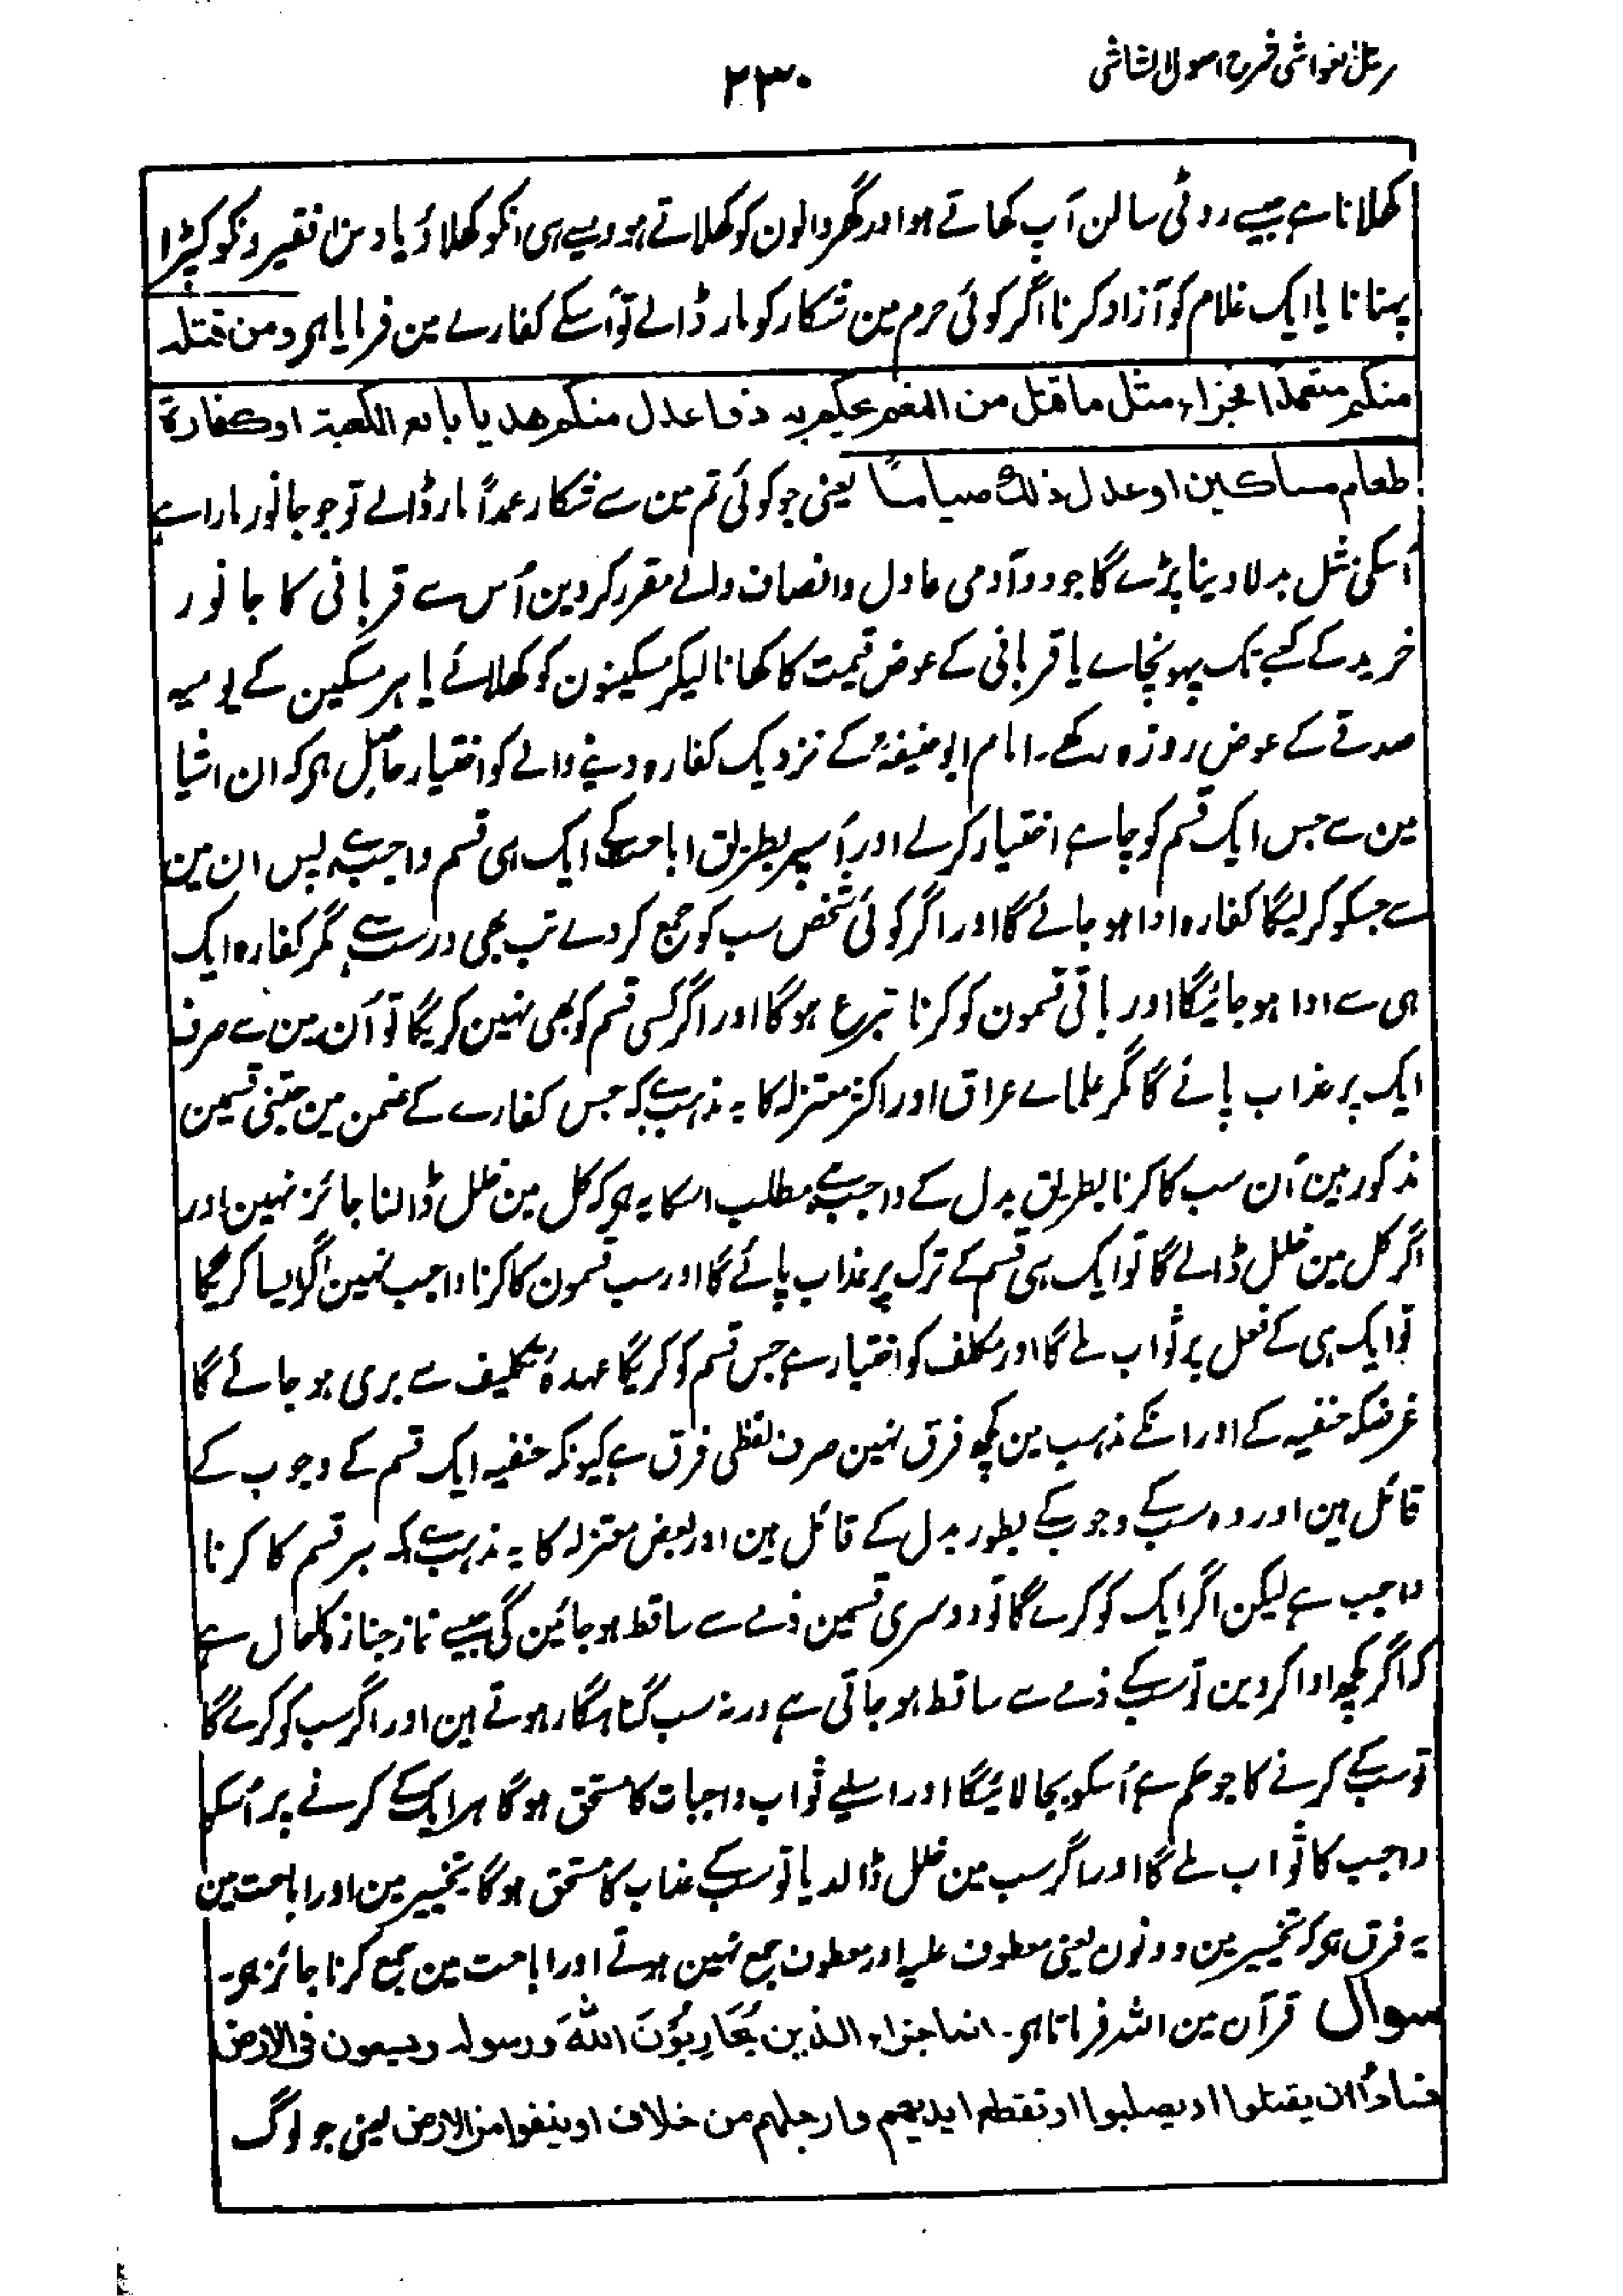 مزیل الغواشی شرح اصول الشاشی
۲۳۰
کھلانا ہے جیسے روٹی سالن آپ کھاتے ہو اور گھر والون کو کھلاتے ہو ویسے ہی انکو کھلاؤ یا دس فقیرونکو کپڑا
پہنانا یا ایک غلام کو آزاد کرنا اگر کوئی حرم مین شکار کو مار ڈالے تو اُسکے کفارے مین فرمایا ہی ومن قتلہ
منکم متعمداً فجزاء مثل ما قتل من النعم یحکم بہ ذوا عدل منکم ھدیا بالغ الکعبۃ او کفارۃ
طعام مساکین او عدل ذلک صیاماً یعنی جو کوئی تم مین سے شکار عمداً مار ڈالے تو جو جانور مارا ہے
اُسکی مثل بدلا دینا پڑے گا جو دو آدمی عادل و انصاف والے مقرر کر دین اُس سے قربانی کا جانور
خرید کے کعبے تک پہونچاے یا قربانی کے عوض قیمت کا کھانا لیکر مسکینون کو کھلائے یا ہر مسکین کے یومیہ
صدقے کے عوض روزہ رکھے۔ امام ابو حنیفہؒ کے نزدیک کفارہ دینے والے کو اختیار حاصل ہی کہ ان اشیا
مین سے جس ایک قسم کو چاہے اختیار کرلے اور اُسپر بطریق اباحت کے ایک ہی قسم واجب ہے پس ان مین
سے جسکو کرلیگا کفارہ ادا ہو جائے گا اور اگر کوئی شخص سب کو جمع کر دے تب بھی درست ہے مگر کفارہ ایک
ہی سے ادا ہو جائیگا اور باقی قسمون کو کرنا تبرع ہوگا اور اگر کسی قسم کو بھی نہین کریگا تو اُن مین سے صرف
ایک پر عذاب پائے گا مگر علماے عراق اور اکثر معتزلہ کا یہ مذہب ہے کہ جس کفارے کے ضمن مین جتنی قسمین
مذکور ہین اُن سب کا کرنا بطریق بدل کے واجب ہے مطلب اسکا یہ ہی کہ کل مین خلل ڈالنا جائز نہین اور
اگر کل مین خلل ڈالے گا تو ایک ہی قسم کے ترک پر عذاب پائے گا اور سب قسمون کا کرنا واجب نہین اگر ایسا کریگا
تو ایک ہی کے فعل پر ثواب ملے گا اور مکلف کو اختیار ہے جس قسم کو کریگا عہدۂ تکلیف سے بری ہو جائے گا
غرضکہ حنفیہ کے اور انکے مذہب مین کچھ فرق نہین صرف لفظی فرق ہے کیونکہ حنفیہ ایک قسم کے وجوب کے
قائل ہین اور وہ سب کے وجوب کے بطور بدل کے قائل ہین اور بعض معتزلہ کا یہ مذہب ہے کہ ہر قسم کا کرنا
واجب ہے لیکن اگر ایک کو کرے گا تو دوسری قسمین ذمے سے ساقط ہو جائین گی جیسے نماز جنازہ کا حال ہے
کہ اگر کچھ ادا کر دین تو سب کے ذمے سے ساقط ہو جاتی ہے ورنہ سب گناہگار ہوتے ہین اور اگر سب کو کرے گا
تو سب کے کرنے کا جو حکم ہے اُسکو بجا لائیگا اور اسلیے ثواب واجبات کا مستحق ہوگا ہر ایک کے کرنے پر اُسکو
واجب کا ثواب ملے گا اور اگر سب مین خلل ڈالدیا تو سب کے عذاب کا مستحق ہوگا تخییر مین اور اباحت مین
یہ فرق ہی کہ تخییر مین دونون یعنی معطوف علیہ اور معطوف جمع نہین ہوتے اور اباحت مین جمع کرنا جائز ہی۔
سوال قرآن مین اللہ فرماتا ہی۔ انما جزاء الذین یُحَارِبُوْنَ اللہَ وَرسولہ ویسعون فی الارض
فساداً ان یقتلوا او یصلبوا او تقطع ایدیھم وارجلہم من خلاف او ینفوا من الارض یعنی جو لوگ